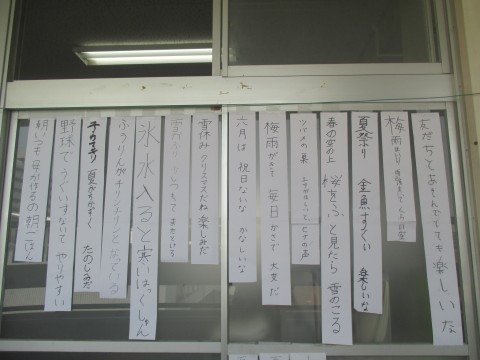 友だちとあそんでとても楽しいな
梅雨
夏祭り 金魚すくい 楽しいな
春の空の上 桜をふと見たら 雪のこる
ツバメの巣 ヒナの声
梅雨がきて 毎日かさで 大変だ
六月は 祝日ないな かなしいな
雪休み クリスマスだね 楽しみだ
氷水入ると寒いはっくしょん
ふうりんがチリンチリンと なっている
夏がちかづく たのしみだ
野球で うぐいすないて やりやすい
朝いつも母が作るの朝ごはん